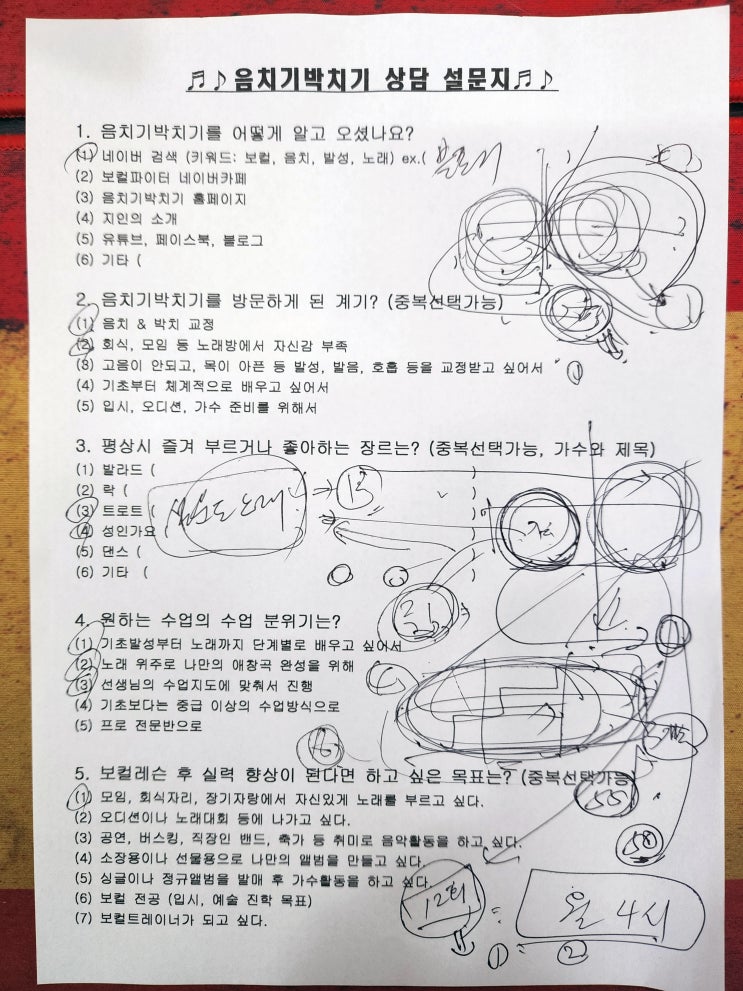 ♬♪음치기박치기 상담 설문지♬♪
1. 음치기박치기를 어떻게 알고 오셨나요?
(1) 네이버 검색 (키워드: 보컬, 음치, 발성, 노래) ex.( )
(2) 보컬파이터 네이버카페
(3) 음치기박치기 홈페이지 )
(4) 지인의 소개
(5) 유튜브, 페이스북, 블로그
(6) 기타 ( )
2. 음치기박치기를 방문하게 된 계기? (중복선택가능)
(1) 음치 & 박치 교정
(2) 회식, 모임 등 노래방에서 자신감 부족
(3) 고음이 안되고, 목이 아픈 등 발성, 발음, 호흡 등을 교정받고 싶어서 ①
(4) 기초부터 체계적으로 배우고 싶어서
(5) 입시, 오디션, 가수 준비를 위해서
3. 평상시 즐겨 부르거나 좋아하는 장르는? (중복선택가능, 가수와 제목)
(1) 발라드 ( )
(2) 락 (
(3) 트로트 ( 15
(4) 성인가요 (
(5) 댄스 ( )
(6) 기타 ( )
4. 원하는 수업의 수업 분위기는?
(1) 기초발성부터 노래까지 단계별로 배우고 싶어서
(2) 노래 위주로 나만의 애창곡 완성을 위해
(3) 선생님의 수업지도에 맞춰서 진행
(4) 기초보다는 중급 이상의 수업방식으로
(5) 프로 전문반으로
5. 보컬레슨 후 실력 향상이 된다면 하고 싶은 목표는? (중복선택가능)
(1) 모임, 회식자리, 장기자랑에서 자신있게 노래를 부르고 싶다. 55
(2) 오디션이나 노래대회 등에 나가고 싶다.
(3) 공연, 버스킹, 직장인 밴드, 축가 등 취미로 음악활동을 하고 싶다. 58
(4) 소장용이나 선물용으로 나만의 앨범을 만들고 싶다.
(5) 싱글이나 정규앨범을 발매 후 가수활동을 하고 싶다.
(6) 보컬 전공 (입시, 예술 진학 목표) 12회 월 4시
(7) 보컬트레이너가 되고 싶다.
① ②